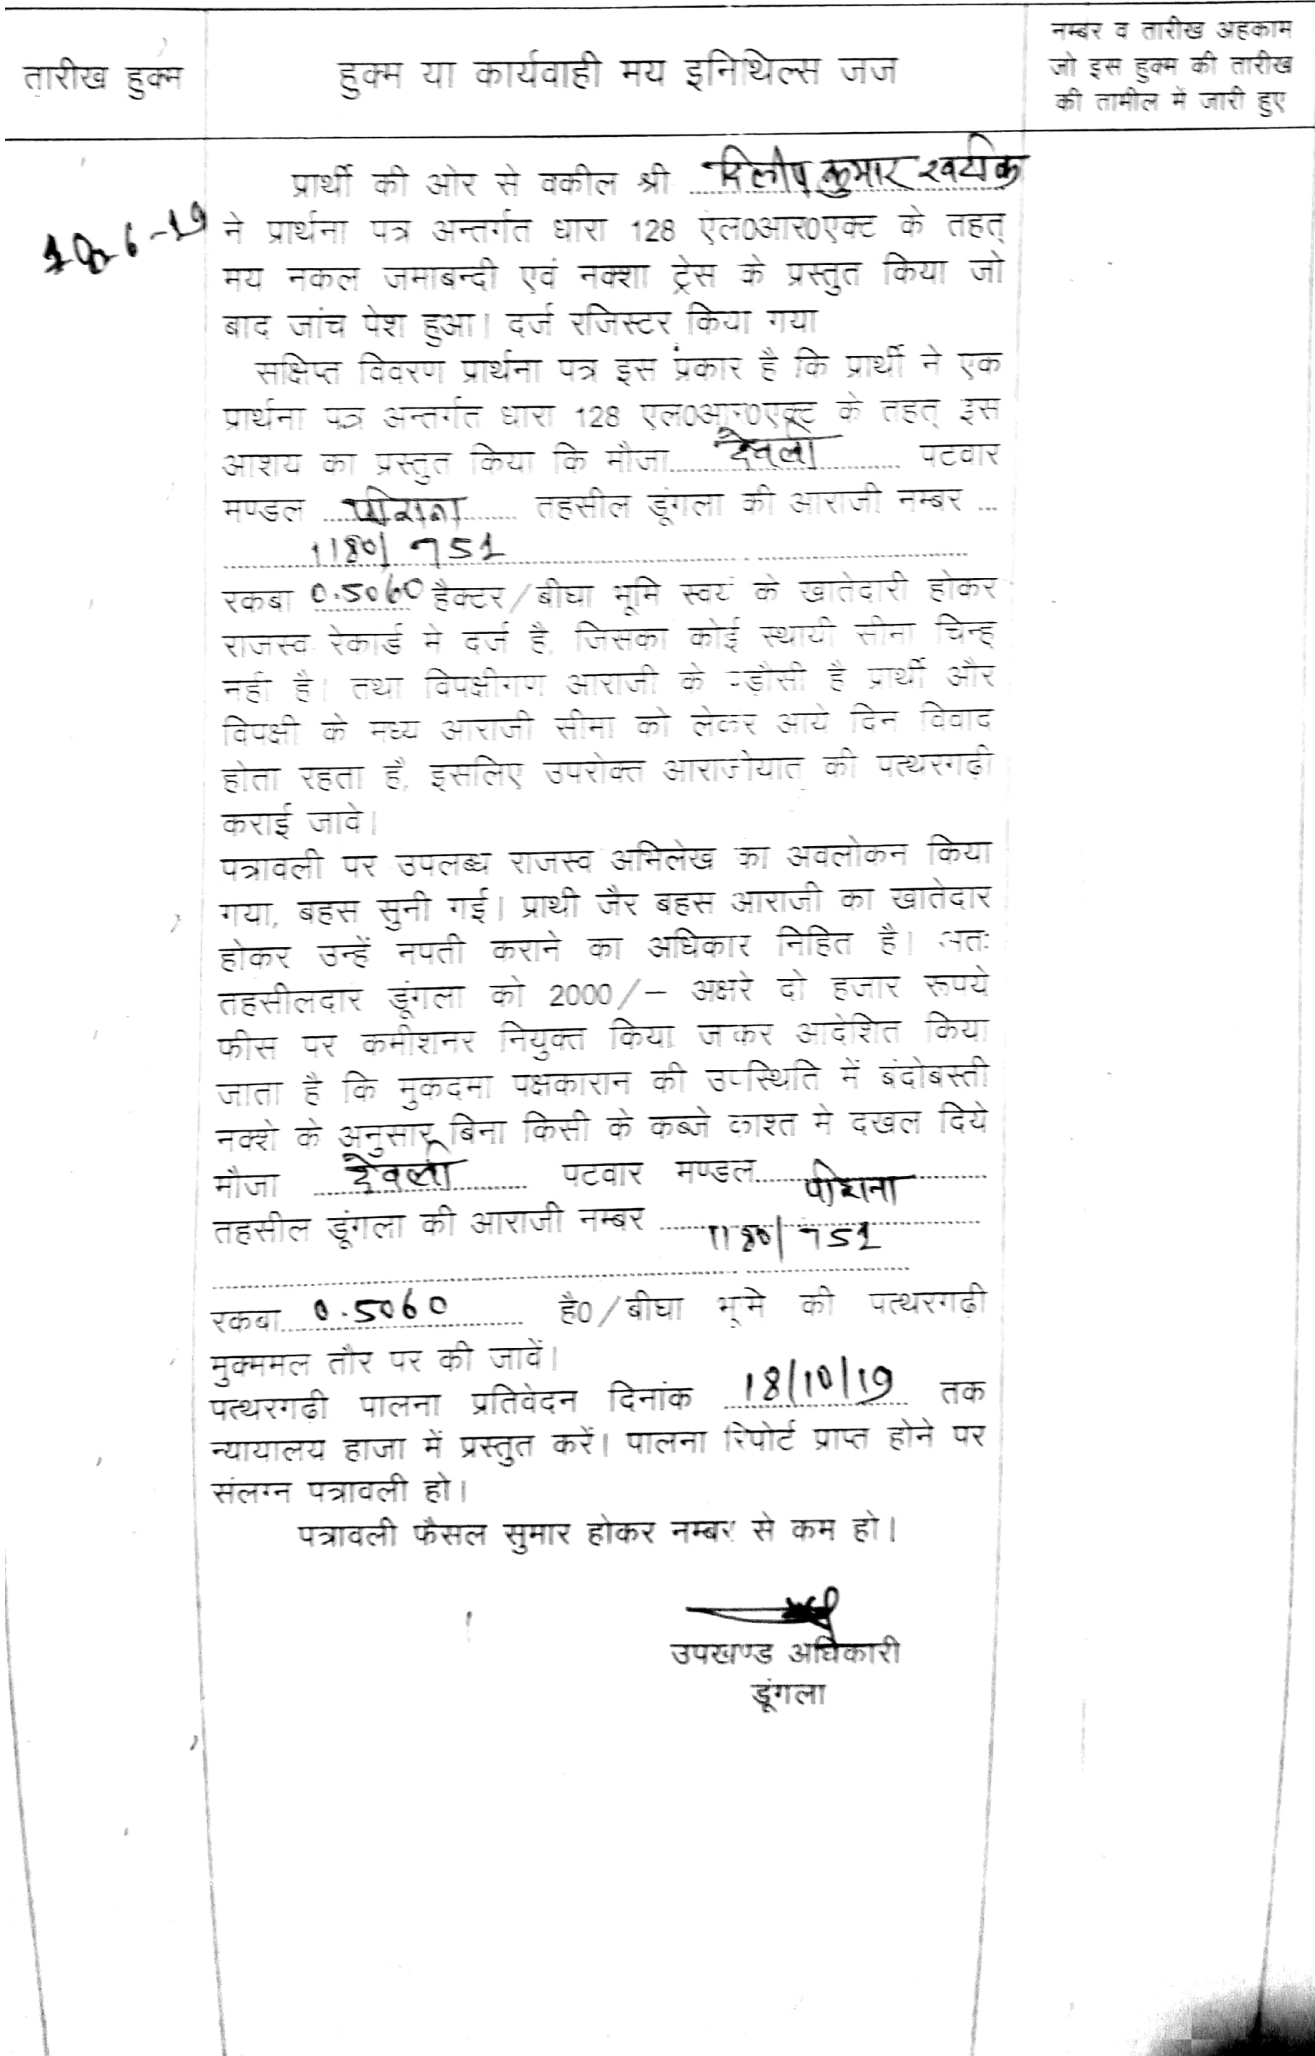 तारीख हुक्म
हुक्म या कार्यवाही मय इनिथिल्स जज
नम्बर व तारीख अहकाम
जो इस हुक्म की तारीख
की तामील में जारी हुए
प्रार्थी की ओर से वकील श्री दिलीप कुमार खटीक
ने प्रार्थना पत्र अन्तर्गत धारा 128 एल0आर0एक्ट के तहत्
मय नकल जमाबन्दी एवं नक्शा ट्रेस के प्रस्तुत किया जो
बाद जांच पेश हुआ। दर्ज रजिस्टर किया गया
सक्षिप्त विवरण प्रार्थना पत्र इस प्रंकार है कि प्रार्थी ने एक
प्रार्थना पत्र अन्तर्गत धारा 128 एल0आर0एक्ट के तहत् इस
आशय का प्रस्तुत किया कि मौजा देवली पटवार
मण्डल तहसील डूंगला की आराजी नम्बर ...
1180/751
रकबा 0.5060 हैक्टर/बीघा भूमि स्वयं के खातेदारी होकर
राजस्व रेकार्ड मे दर्ज है, जिसका कोई स्थायी सीमा चिन्ह
नही है। तथा विपक्षीगण आराजी के पड़ौसी है प्रार्थी और
विपक्षी के मध्य आराजी सीमा को लेकर आये दिन विवाद
होता रहता है, इसलिए उपरोक्त आराजीयात की पत्थरगढ़ी
कराई जावे।
पत्रावली पर उपलब्ध राजस्व अभिलेख का अवलोकन किया
गया, बहस सुनी गई। प्राथी जैर बहस आराजी का खातेदार
होकर उन्हें नपती कराने का अधिकार निहित है। अतः
तहसीलदार डूंगला को 2000/– अक्षरे दो हजार रूपये
फीस पर कमीशनर नियुक्त किया जाकर आदेशित किया
जाता है कि मुकदमा पक्षकारान की उपस्थिति में बंदोबस्ती
नक्शे के अनुसार बिना किसी के कब्जे काश्त मे दखल दिये
मौजा देवली पटवार मण्डल
तहसील डूंगला की आराजी नम्बर 1180/751
रकबा 0.5060 है0/बीघा भूमि की पत्थरगढ़ी
मुक्ममल तौर पर की जावें।
पत्थरगढी पालना प्रतिवेदन दिनांक 18/10/19 तक
न्यायालय हाजा में प्रस्तुत करें। पालना रिपोर्ट प्राप्त होने पर
संलग्न पत्रावली हो।
पत्रावली फैसल सुमार होकर नम्बर से कम हो।
उपखण्ड अधिकारी
डूंगला